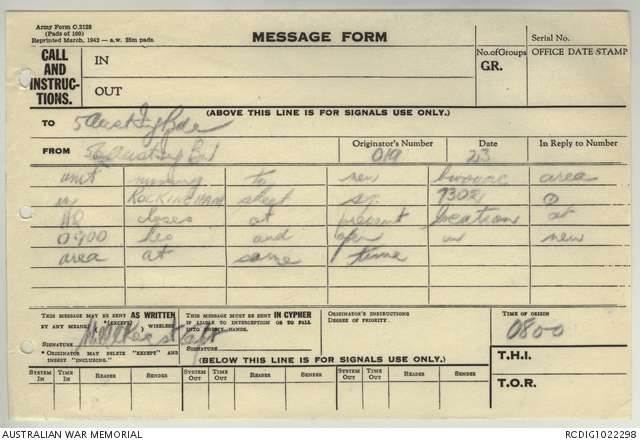 Army Form C.2128
(Pads of 100)
Reprinted March, 1942 — a.w. 25m pads.
MESSAGE FORM
Serial No.
CALL AND INSTRUCTIONS.
IN
OUT
No. of Groups
GR.
OFFICE DATE STAMP
(ABOVE THIS LINE IS FOR SIGNALS USE ONLY.)
TO 5 Aust Inf Bde
FROM Aust Inf Bn
Originator's Number 019
Date 23
In Reply to Number
unit moving to new bivouac area
in ROCKINGHAM sheet 7302
HQ closes at present location at
0900 hrs and open in new
area at same time
THIS MESSAGE MAY BE SENT AS WRITTEN
BY ANY MEANS *(EXCEPT) WIRELESS.
SIGNATURE
* ORIGINATOR MAY DELETE "EXCEPT" AND
INSERT "INCLUDING."
THIS MESSAGE MUST BE SENT IN CYPHER
IF LIABLE TO INTERCEPTION OR TO FALL
INTO ENEMY HANDS.
SIGNATURE
ORIGINATOR'S INSTRUCTIONS
DEGREE OF PRIORITY.
TIME OF ORIGIN
0800
T.H.I.
T.O.R.
(BELOW THIS LINE IS FOR SIGNALS USE ONLY.)
SYSTEM IN TIME IN READER SENDER SYSTEM OUT TIME OUT READER SENDER SYSTEM OUT TIME OUT READER SENDER
AUSTRALIAN WAR MEMORIAL
RCDIG1022298